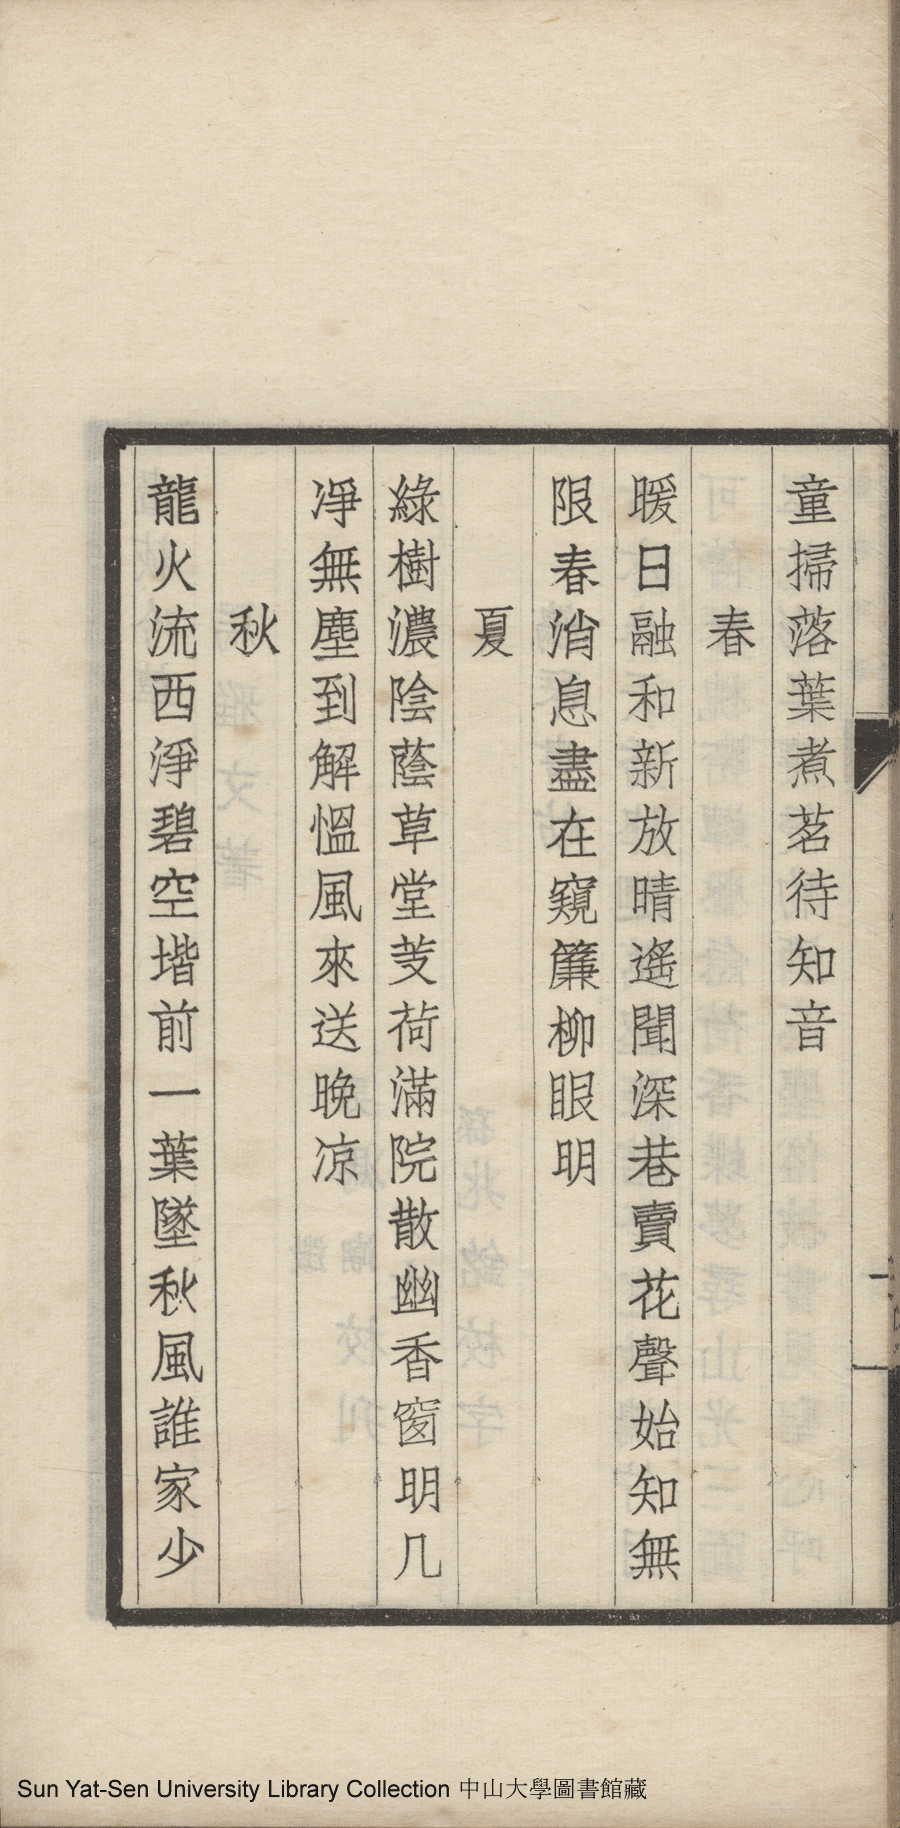 童掃落葉煮茗待知音
春
暖日融和新放晴遙聞深巷賣花聲始知無
限春消息盡在窺簾柳眼明
夏
綠樹濃陰蔭草堂芰荷滿院散幽香窗明几
凈無塵到解慍風來送晚凉
秋
龍火流西淨碧空堦前一葉墜秋風誰家少
Sun Yat-Sen University Library Collection 中山大學圖書館藏